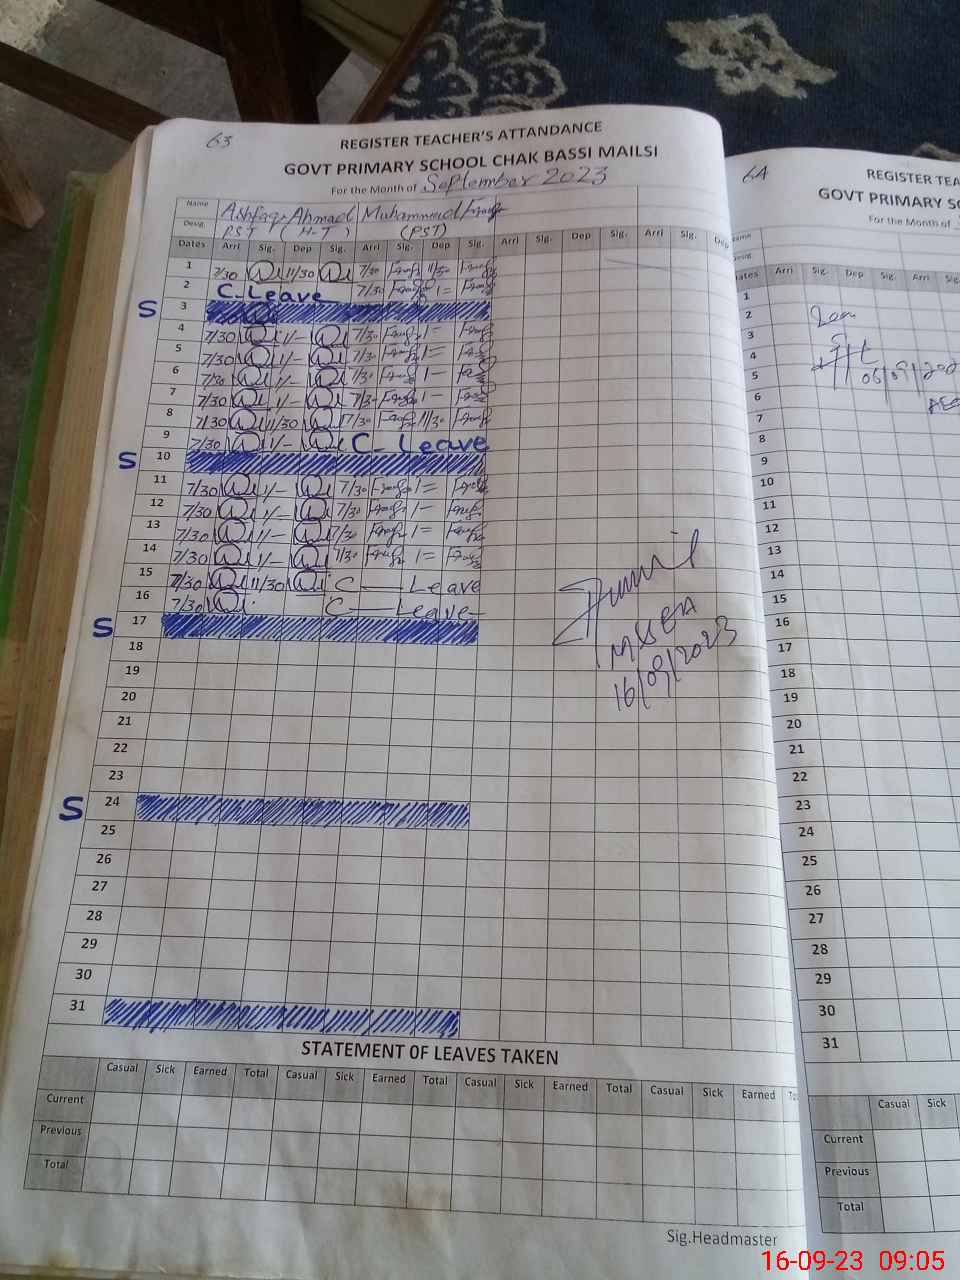 63
REGISTER TEACHER'S ATTANDANCE
GOVT PRIMARY SCHOOL CHAK BASSI MAILSI
For the Month of September 2023
Name Ashfaq Ahmad Muhammad
Desig. PST (H-T) (PST)
Dates Arri Sig. Dep Sig. Arri Sig. Dep Sig. Arri Sig. Dep Sig. Arri Sig. Dep
1 7/30 11/30 7/30 11/30
2 C-Leave 7/30 1=
S 3
4 7/30 1/- 7/30 1=
5 7/30 1/- 7/30 1=
6 7/30 1/- 7/30 1-
7 7/30 1/- 7/30 1-
8 7/30 11/30 7/30 11/30
9 7/30 1/- C-Leave
S 10
11 7/30 1/- 7/30 1=
12 7/30 1/- 7/30 1-
13 7/30 1/- 7/30 1=
14 7/30 1/- 7/30 1=
15 7/30 11/30 C-Leave
16 7/30 C-Leave
S 17
18
19
20
21
22
23
S 24
25
26
27
28
29
30
31
M&EA
16/09/2023
STATEMENT OF LEAVES TAKEN
Casual Sick Earned Total Casual Sick Earned Total Casual Sick Earned Total Casual Sick Earned
Current
Previous
Total
Sig.Headmaster
64
REGISTER TEA
GOVT PRIMARY SC
For the Month of
Arri Sig. Dep Sig. Arri
1
2
3
4
5
6
7
8
9
10
11
12
13
14
15
16
17
18
19
20
21
22
23
24
25
26
27
28
29
30
31
Casual Sick
Current
Previous
Total
16-09-23 09:05